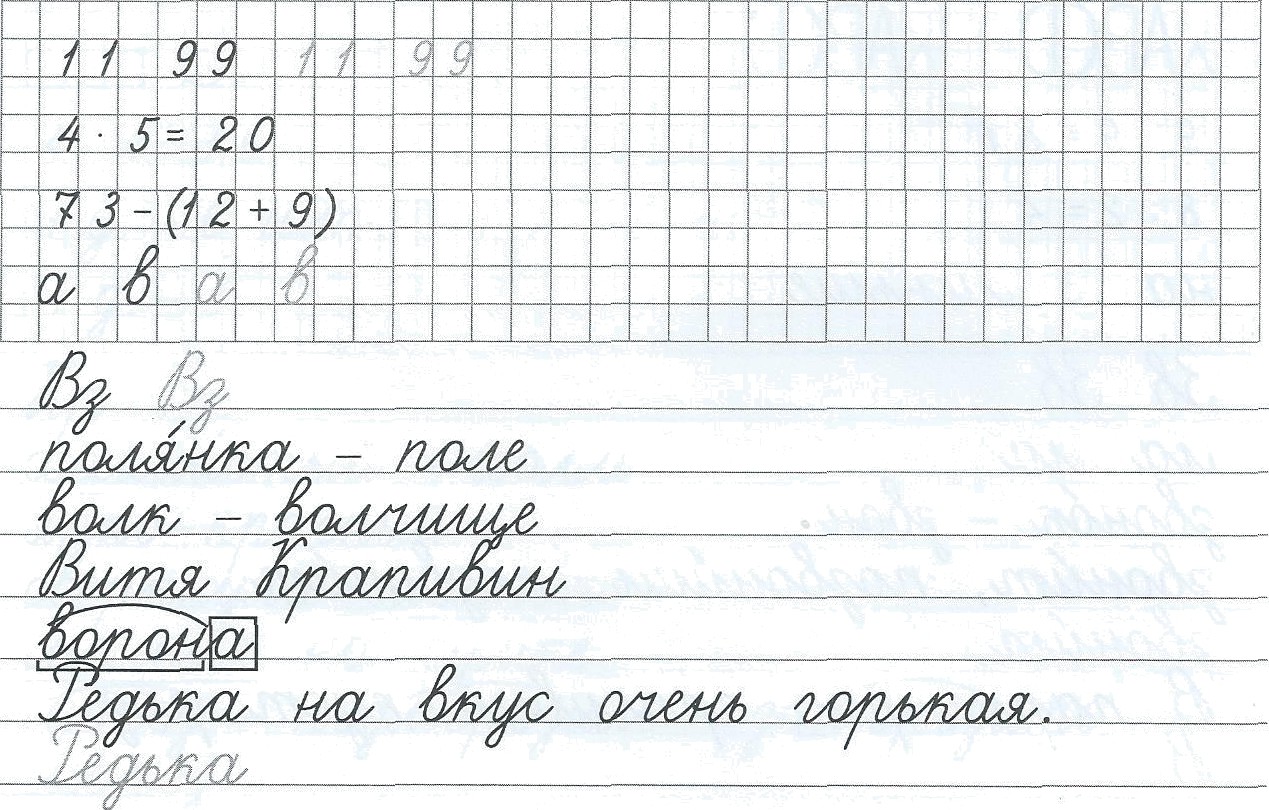 11 99 11 99
4 · 5 = 20
73 - (12 + 9)
а в а в
Вз Вз
поля́нка – поле
волк – волчище
Витя Крапивин
ворона
Редька на вкус очень горькая.
Редька